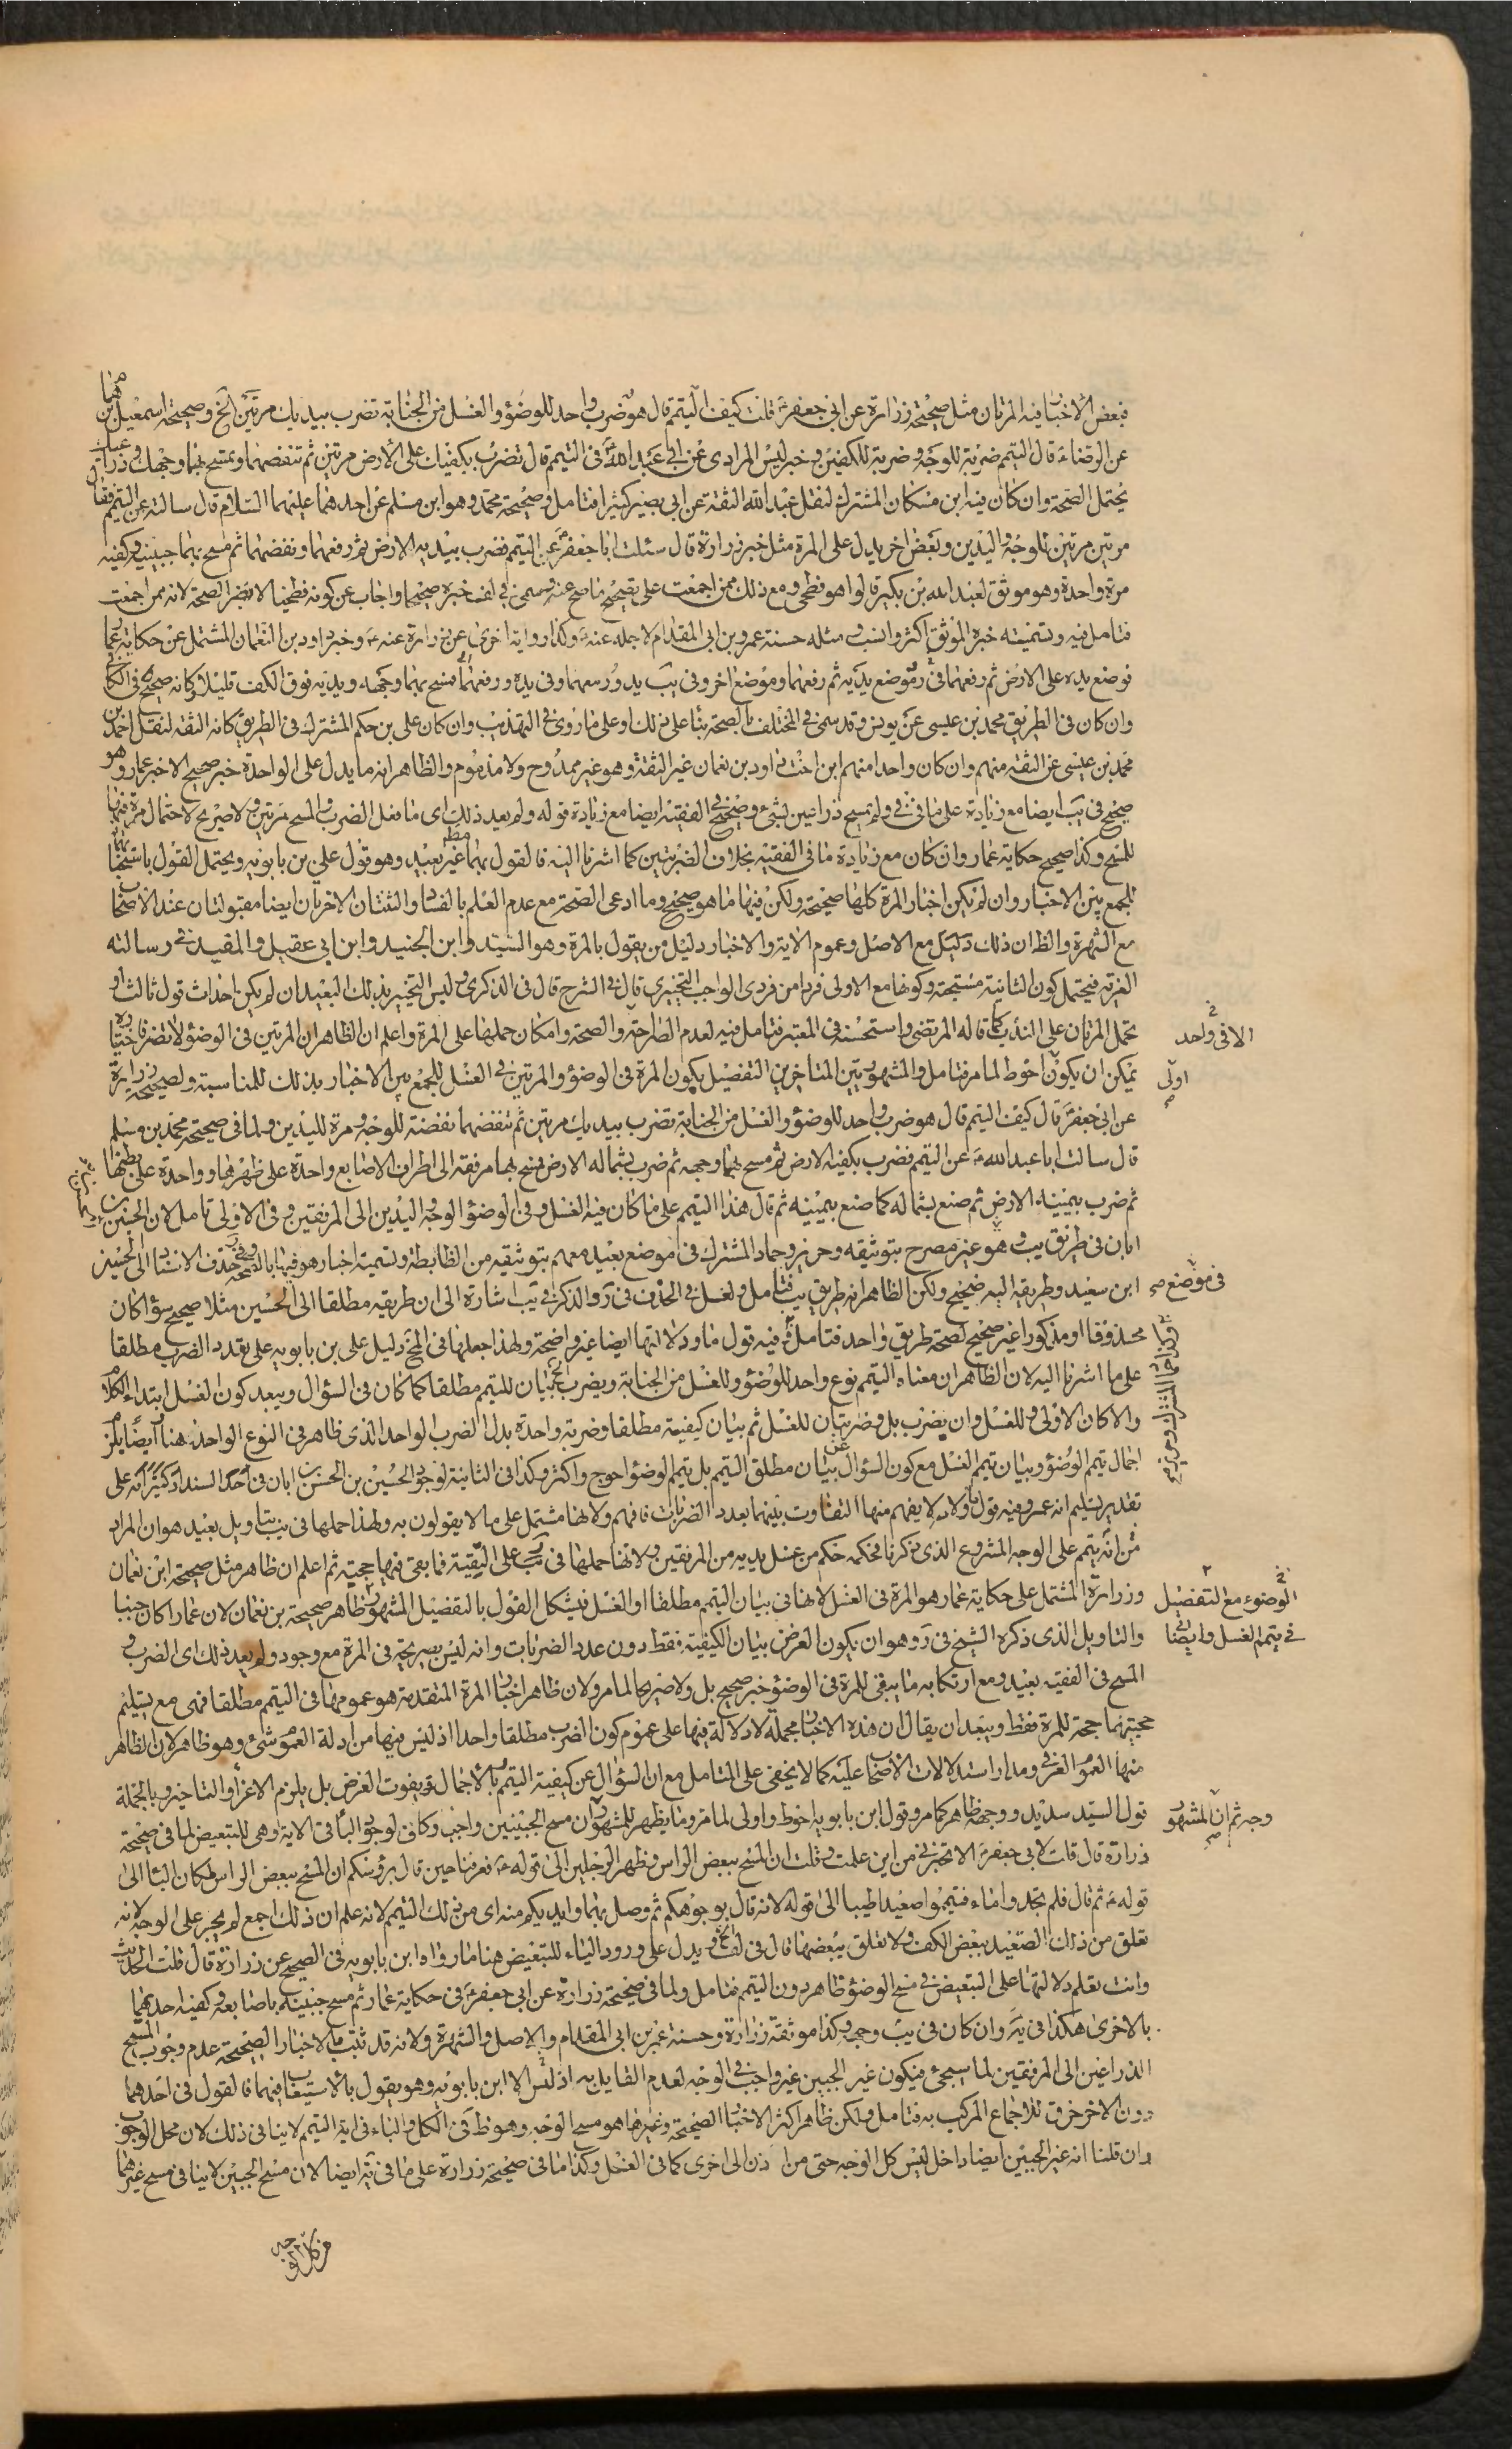 فبعض الأخبار فيه المرتان مثل صحيحة زرارة عن ابي جعفر ع قلت كيف التيمم قال هو ضرب واحد للوضوء والغسل من الجنابة تضرب بيديك مرتين الخ وصحيحة اسمعيل بن همام
عن الرضا ع قال التيمم ضربة للوجه وضربة للكفين وخبر ليس المرادى عن ابي عبد الله ع في التيمم قال تضرب بكفيك على الأرض مرتين ثم تنفضهما وتمسح بهما وجهك وذراعيك
يحتمل الصحة وان كان فيه ابن مسكان المشترك لنقل عبد الله الثقة عن ابي بصير كثيرا فتامل وصحيحة محمد وهو ابن مسلم عن احدهما عليهما السلام قال سالته عن التيمم فقال
مرتين مرتين للوجه واليدين وبعض اخر يدل على المرة مثل خبر زرارة قال سئلت ابا جعفر ع عن التيمم فضرب بيديه الارض ثم رفعهما ونفضهما ثم مسح بهما جبينيه وكفيه
مرة واحدة وهو موثق لعبد الله بن بكير قالوا هو فطحى ومع ذلك ممن اجمعت على تصحيح ما صح عنه وسمى في لف خبره صحيحا واجاب عن كونه فطحيا لا يضر الصحة لانه ممن اجمعت
فتامل فيه وتسميته خبره الموثق اكثر وانسب ومثله حسنة عمرو بن ابى المقدام لاجله عنه ع وكذا رواية اخرى عن زرارة عنه ع وخبر داود بن النعمان المشتمل عن حكاية عمار
فوضع يده على الارض ثم رفعهما في ر وضع يديه ثم رفعهما وموضع اخر وفى يب يد ورفعهما وفى يده ورفعهما فمسح بهما وجهه ويديه فوق الكف قليلا وكانه صحيح في الكا
وان كان في الطريق محمد بن عيسى عن يونس وقد سمى في المختلف بالصحة بناء على ذلك او على ما روى في التهذيب وان كان على بن حكم المشترك في الطريق كانه الثقة لنقل احمد بن
محمد بن عيسى عن الثقة منهم وان كان واحدا منهم ابن اخت داود بن نعمان غير الثقة وهو غير ممدوح ولا مذموم والظاهر انه ما يدل على الواحدة خبر صحيح الا خبر عمار وهو
صحيح في يب ايضا مع زيادة على ما في في ولم يمسح ذراعين بشئ وصحيح في الفقيه ايضا مع زيادة قوله ولم يعد ذلك اى ما فعل الضرب والمسح مرتين ولا صريح لاحتمال مرة فيها
للمسح وكذا صحيح حكاية عمار وان كان مع زيادة ما في الفقيه بخلاف الضربتين كما اشرنا اليه فالقول بهما مط غير بعيد وهو قول على بن بابويه ويحتمل القول باستحبابهما
للجمع بين الاخبار وان لم يكن اخبار المرة كلها صحيحة ولكن فيها ما هو صحيح وما ادعى الصحة مع عدم العلم بالفساد والثنتان الاخريان ايضا مقبولتان عند الاصحاب
مع الشهرة والظ ان ذلك دليل مع الاصل وعموم الاية والاخبار دليل من يقول بالمرة وهو السيد وابن الجنيد وابن ابي عقيل والمفيد في رسالته
الغرية فيحتمل كون الثانية مستحبة وكونها مع الاولى فردا من فردى الواجب التخييرى قال في الشرح قال في الذكرى وليس التخيير بذلك البعيد ان لم يكن احداث قول ثالث او
تحمل المرتان على الندب كما قاله المرتضى واستحسنه في المعتبر فتامل فيه لعدم الصراحة والصحة وامكان حملها على المرة واعلم ان الظاهر ان المرتين في الوضوء لا تضر فاختياره
يمكن ان يكون احوط لما مر فتامل والمشهور بين المتاخرين التفصيل بكون المرة في الوضوء والمرتين في الغسل للجمع بين الاخبار بذلك للمناسبة ولصحيحة زرارة
عن ابي جعفر ع قال كيف التيمم قال هو ضرب واحد للوضوء والغسل من الجنابة تضرب بيديك مرتين ثم تنفضهما نفضة للوجه ومرة لليدين ولما في صحيحة محمد بن مسلم
قال سالت ابا عبد الله ع عن التيمم فضرب بكفيه الارض ثم مسح بهما وجهه ثم ضرب بشماله الارض فمسح بهما مرفقه الى اطراف الاصابع واحدة على ظهرها وواحدة على بطنها
ثم ضرب بيمينه الارض ثم صنع بشماله كما صنع بيمينه ثم قال هذا التيمم على ما كان فيه الغسل وفى الوضوء الوجه واليدين الى المرفقين وفى الاولى تامل لان الحسين بن
ابان في طريق يب وهو غير مصرح بتوثيقه وحريز وحماد المشترك في موضع بعيد معهم بتوثيقه من الظابطة وتسمية اخبار هو فيها بالصحة وفي حذف الاسناد الى الحسين
ابن سعيد وطريقه اليه صحيح ولكن الظاهر انه طريق يب فتامل ولعل في الحذف في ر والذكر في يب اشارة الى ان طريقه مطلقا الى الحسين مثلا صحيح سواء كان
محذوفا او مذكورا غير صحيح لصحة طريق واحد فتامل وفيه قول ما ودلالتها ايضا غير واضحة ولهذا جعلها في المخ دليل على بن بابويه على تعدد الضرب مطلقا
على ما اشرنا اليه لان الظاهر ان معناه التيمم نوع واحد للوضوء وللغسل من الجنابة ويضرب الخ بيان للتيمم مطلقا كما كان في السؤال ويبعد كون الغسل ابتداء الكلام
والا كان الاولى وللغسل وان يضرب بل وضربتان للغسل ثم بيان كيفية مطلقا وضربة واحدة بدل الضرب الواحد الذى ظاهر في النوع الواحد هنا وايضا يلزم
اجمال تيمم الوضوء وبيان تيمم الغسل مع كون السؤال عن بيان مطلق التيمم بل تيمم الوضوء احوج واكثر وكذا في الثانية لوجود الحسين بن الحسن بن ابان في احد السند
تقدير تسليم انه عمر وفيه قول ولانه لا يفهم منها التفاوت بينهما بعدد الضربات فافهم ولانها مشتمل على ما لا يقولون به ولهذا حملها في يب بتاويل بعيد هو ان المراد
من انه يتمم على الوجه المشروع الذى ذكرنا فحكمه حكم من غسل يديه من المرفقين ولانها حملها في يب على التقية فما بقى فيها حجية ثم اعلم ان ظاهر مثل صحيحة ابن نعمان
وزرارة المشتمل على حكاية عمار هو المرة في الغسل لانها في بيان التيمم مطلقا او الغسل فيشكل القول بالتفصيل المشهور ظاهر صحيحة بن نعمان لان عمارا كان جنبا
والتاويل الذى ذكره الشيخ في ر وهو ان يكون الغرض بيان الكيفية فقط دون عدد الضربات وانه ليس بصريحة في المرة مع وجود ولم يعد ذلك اى الضرب و
المسح في الفقيه بعيد ومع ارتكابه ما يبقى للمرة في الوضوء خبر صحيح بل ولا صريح لما مر ولان ظاهر اخبار المرة المتقدمة هو عمومها في التيمم مطلقا فهى مع تسليم
حجيتهما حجة للمرة فقط ويبعد ان يقال ان هذه الاخبار مجملة لا دلالة فيها على عموم كون الضرب مطلقا واحدا اذ ليس فيها من ادلة العموم شئ وهو ظاهر لان الظاهر
منها العموم العرفى ومدار استدلالات الاصحاب عليه كما لا يخفى على المتامل مع ان السؤال عن كيفية التيمم بالاجمال قد يفوت الغرض بل يلزم الاغراء والتاخير وبالجملة
قول السيد سديد ووجهه ظاهر كما مر وقول ابن بابويه احوط واولى لما مر وما يظهر للمشهور ان مسح الجبينين واجب وكاف لوجود الباء في الاية وهى للتبعيض لما في صحيحة
زرارة قال قلت لابي جعفر ع الا تخبرنى من اين علمت وقلت ان المسح ببعض الراس وظهر الرجلين الى قوله ع فعرفنا حين قال برؤسكم ان المسح ببعض الراس لمكان الباء الى
قوله ع ثم قال فلم تجدوا ماء فتيمموا صعيدا طيبا الى قوله لانه قال بوجوهكم ثم وصل بهما وايديكم منه اى من ذلك التيمم لانه علم ان ذلك اجمع لم يجر على الوجه لانه
تعلق من ذلك الصعيد ببعض الكف ولا تعلق ببعضها قال في لف ويدل على ورود الباء للتبعيض هنا ما رواه ابن بابويه في الصحيح عن زرارة قال قلت الحديث
وانت تعلم دلالتها على التبعيض في مسح الوضوء ظاهر دون التيمم فتامل ولما في صحيحة زرارة عن ابي جعفر ع في حكاية عمار ثم مسح جبينيه باصابعه وكفيه احديهما
بالاخرى هكذا في يه وان كان في يب وجهه وكذا موثقة زرارة وحسنة عمر بن ابى المقدام والاصل والشهرة ولانه قد ثبت بالاخبار الصحيحة عدم وجوب المسح
الذراعين الى المرفقين لما سيجئ فيكون غير الجبين غير واجب في الوجه لعدم القايل به اذ ليس الا ابن بابويه وهو يقول بالاستيعاب فيهما فالقول في احدهما
دون الاخر خرق للاجماع المركب به فتامل ولكن ظاهر اكثر الاخبار الصحيحة وغيرها هو مسح الوجه وهو ظ في الكل والباء في اية التيمم لا ينافى ذلك لان محل الوجوب
وان قلنا انه غير الجبين ايضا داخل ليس كل الوجه حتى من اذن الى اخرى كما في الغسل وكذا ما في صحيحة زرارة على ما في يه ايضا لان مسح الجبين لا ينافى مسح غيرهما
الا في واحد
اولى
في موضع
الوضوء مع التفصيل
في تيمم الغسل وايضا
وجه ثم ان المشهور